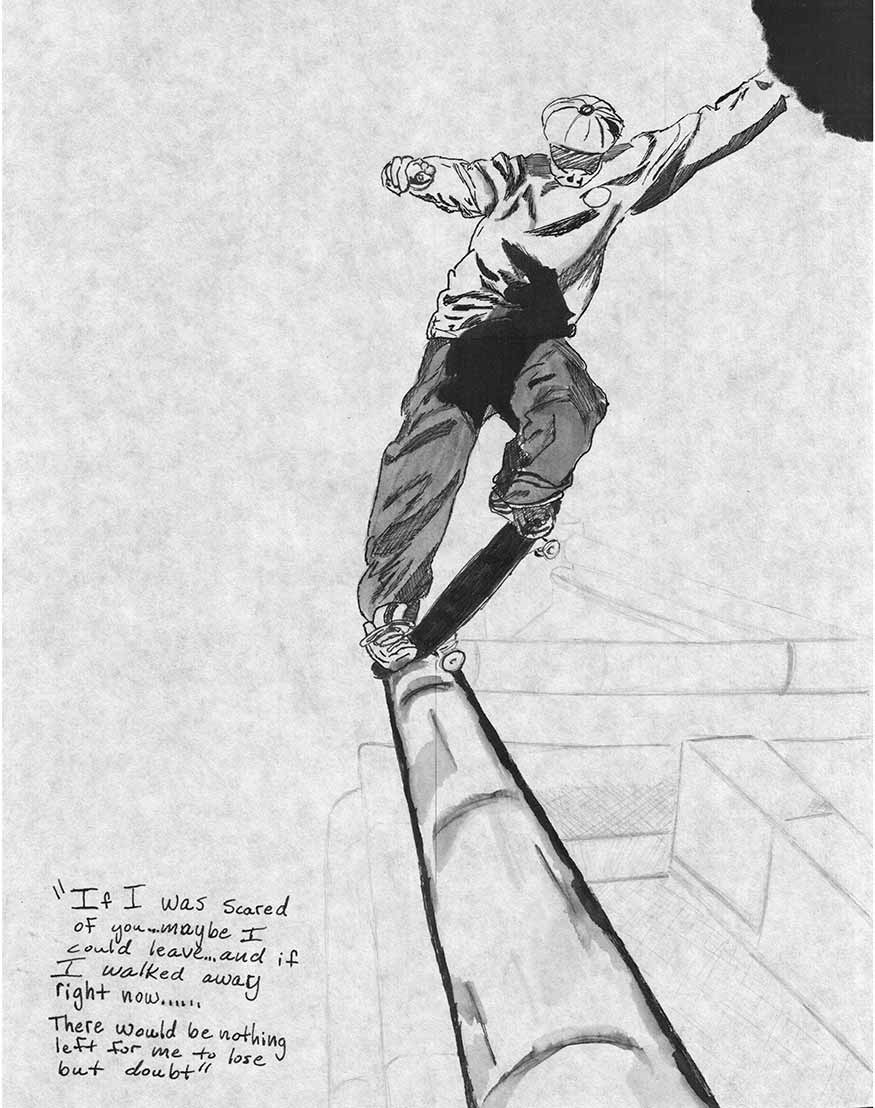 "If I was scared
of you...maybe I
could leave...and if
I walked away
right now......
There would be nothing
left for me to lose
but doubt"